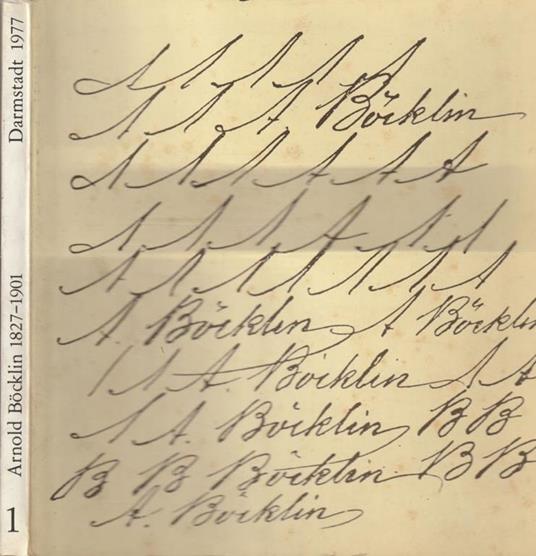 Darmstadt 1977
Arnold Böcklin 1827–1901
1
A A A A A
A A A Böcklin
A A A A A A
A A A A A A
A A A A A A A
A. Böcklin A Böcklin
A A A. Böcklin A A
A A. Böcklin B B
B B Böcklin B B
A. Böcklin